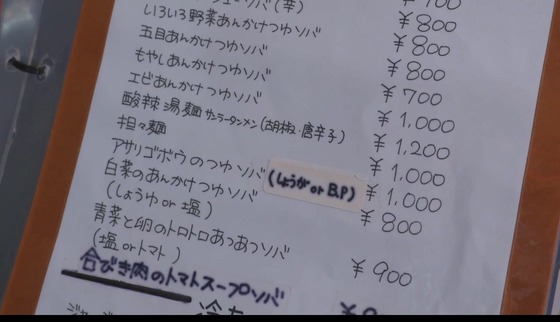 (辛)
いろいろ野菜あんかけつゆソバ ¥800
五目あんかけつゆソバ ¥800
もやしあんかけつゆソバ ¥800
エビあんかけつゆソバ ¥700
酸辣湯麺 サンラータンメン(胡椒・唐辛子) ¥1,000
担々麺 ¥1,200
アサリゴボウのつゆソバ ¥1,000
(しょうが or B.P)
白菜のあんかけつゆソバ ¥1,000
(しょうゆ or 塩) ¥800
青菜と卵のトロトロあつあつソバ
(塩 or トマト) ¥900
合びき肉のトマトスープソバ